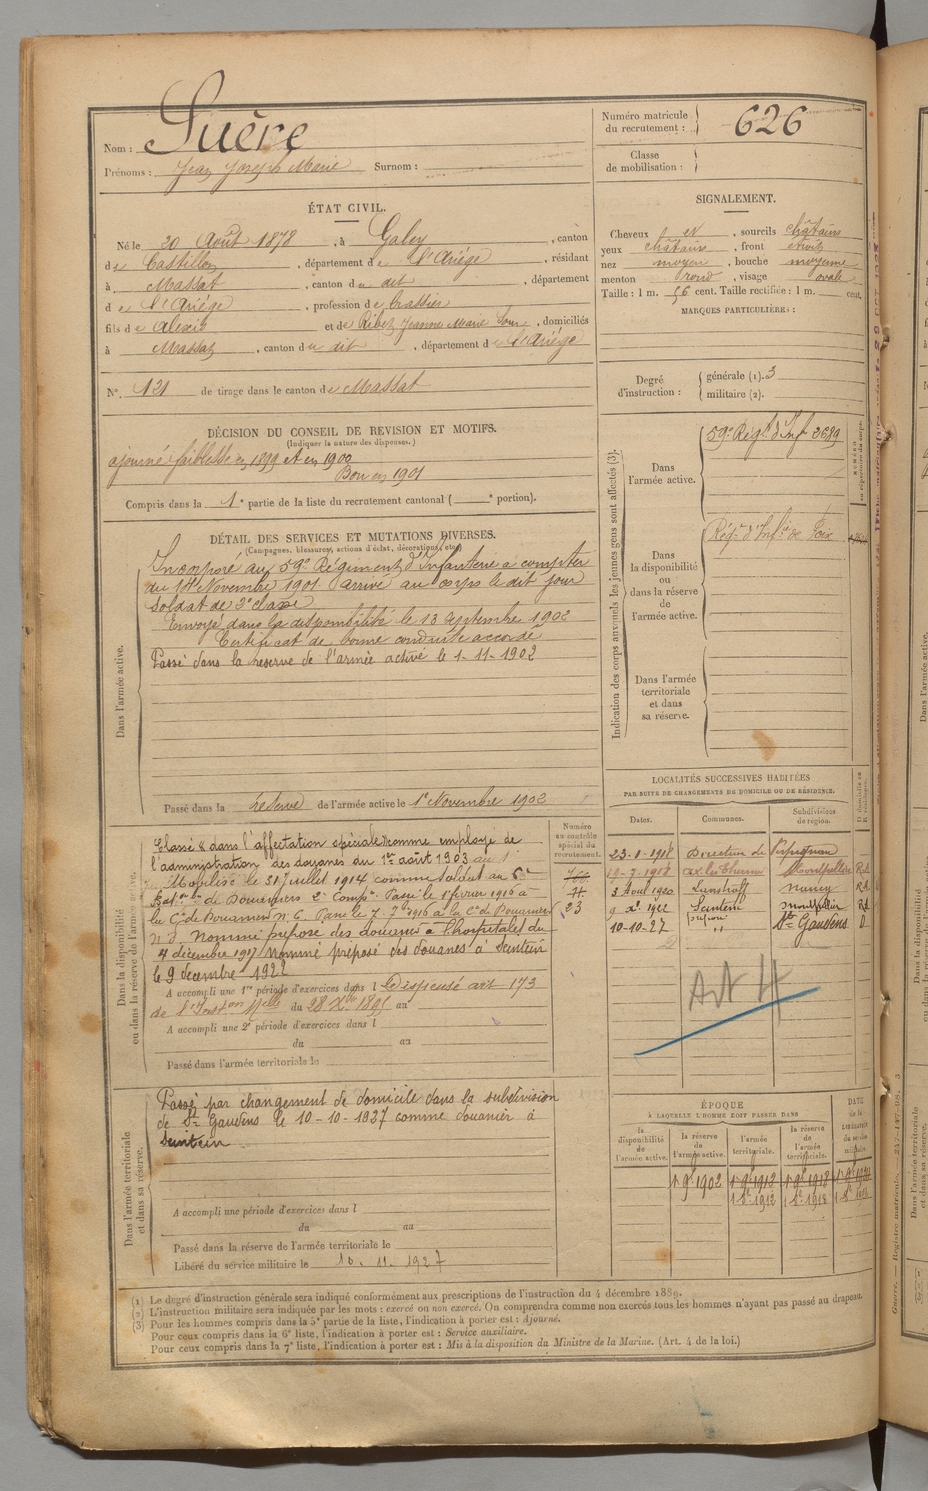 Nom : Suère
Prénoms : Jean Joseph Marie Surnom :
Numéro matricule du recrutement : 626
Classe de mobilisation :
ÉTAT CIVIL.
Né le 20 Août 1878, à Galey, canton
de Castillon, département de l'Ariége, résidant
à Massat, canton du dit, département
de l'Ariége, profession de brassier
fils de Alexis et de Ribet Jeanne Marie, domiciliés
à Massat, canton du dit, département de l'Ariége
N° 121 de tirage dans le canton de Massat
SIGNALEMENT.
Cheveux et, sourcils châtains
yeux châtains, front étroit
nez moyen, bouche moyenne
menton rond, visage ovale
Taille : 1 m. 56 cent. Taille rectifiée : 1 m. cent.
MARQUES PARTICULIÈRES :
Degré d'instruction : générale (1). 3
militaire (2).
DÉCISION DU CONSEIL DE REVISION ET MOTIFS.
(Indiquer la nature des dispenses.)
ajourné faiblesse en 1899 et en 1900
Bon en 1901
Compris dans la 1e partie de la liste du recrutement cantonal ( e portion).
DÉTAIL DES SERVICES ET MUTATIONS DIVERSES.
(Campagnes, blessures, actions d'éclat, décorations, etc.)
Dans l'armée active.
Incorporé au 59e Régiment d'Infanterie à compter
du 14 Novembre 1901 arrivé au corps le dit jour
soldat de 2e classe
Envoyé dans la disponibilité le 13 septembre 1902
Certificat de bonne conduite accordé
Passé dans la réserve de l'armée active le 1-11-1902
Passé dans la réserve de l'armée active le 1er Novembre 1902
Indication des corps auxquels les jeunes gens sont affectés (3).
Dans l'armée active. 59e Régt d'Inf 3689
Dans la disponibilité ou dans la réserve de l'armée active. Régt d'Inf.ie de Foix
Dans l'armée territoriale et dans sa réserve.
LOCALITÉS SUCCESSIVES HABITÉES
PAR SUITE DE CHANGEMENTS DE DOMICILE OU DE RÉSIDENCE.
Dates. Communes. Subdivisions de région.
23-1-1918 Direction de Perpignan
-7-1918 ax les Thermes Montpellier Rd
3 Août 1920 Nancy Rd
9 Xe 1922 Sentein Montpellier Rd
10-10-27 " St Gaudens D
Art 4
Dans la disponibilité ou dans la réserve de l'armée active.
Numéro au contrôle spécial du recrutement.
23
Classé dans l'affectation spéciale comme employé de
l'administration des douanes du 1er août 1903
Mobilisé le 31 juillet 1914 comme soldat au 6e
Bat.on de Douaniers 2e Comp.ie Passé le 1er février 1916 à
la Cie de Douaniers n° 6. Passé le 7-7bre 1916 à la Cie de Douaniers
n° 3. Nommé préposé des douanes à l'hospitalet du
4 décembre 1917 nommé préposé des douanes à Sentein
le 9 decembre 1922
A accompli une 1re période d'exercices dans l Dispensé art 173
de l'Inst.on M.elle du 28 Xbre 1895 au
A accompli une 2e période d'exercices dans l
du au
Passé dans l'armée territoriale le
Dans l'armée territoriale et dans sa réserve.
Passé par changement de domicile dans la subdivision
de St Gaudens le 10-10-1927 comme douanier à
Sentein
A accompli une période d'exercices dans l
du au
Passé dans la réserve de l'armée territoriale le
Libéré du service militaire le 10. 11. 1927
ÉPOQUE
À LAQUELLE L'HOMME DOIT PASSER DANS
la disponibilité de l'armée active. la réserve de l'armée active. l'armée territoriale. la réserve de l'armée territoriale. DATE de la LIBÉRATION du service militaire
1 9bre 1902 1 9bre 1912 1 9bre 1918
(1) Le degré d'instruction générale sera indiqué conformément aux prescriptions de l'instruction du 4 décembre 1889.
(2) L'instruction militaire sera indiquée par les mots : exercé ou non exercé. On comprendra comme non exercés tous les hommes n'ayant pas passé au drapeau.
(3) Pour les hommes compris dans la 5e partie de la liste, l'indication à porter est : Ajourné.
Pour ceux compris dans la 6e liste, l'indication à porter est : Service auxiliaire.
Pour ceux compris dans la 7e liste, l'indication à porter est : Mis à la disposition du Ministre de la Marine. (Art. 4 de la loi.)